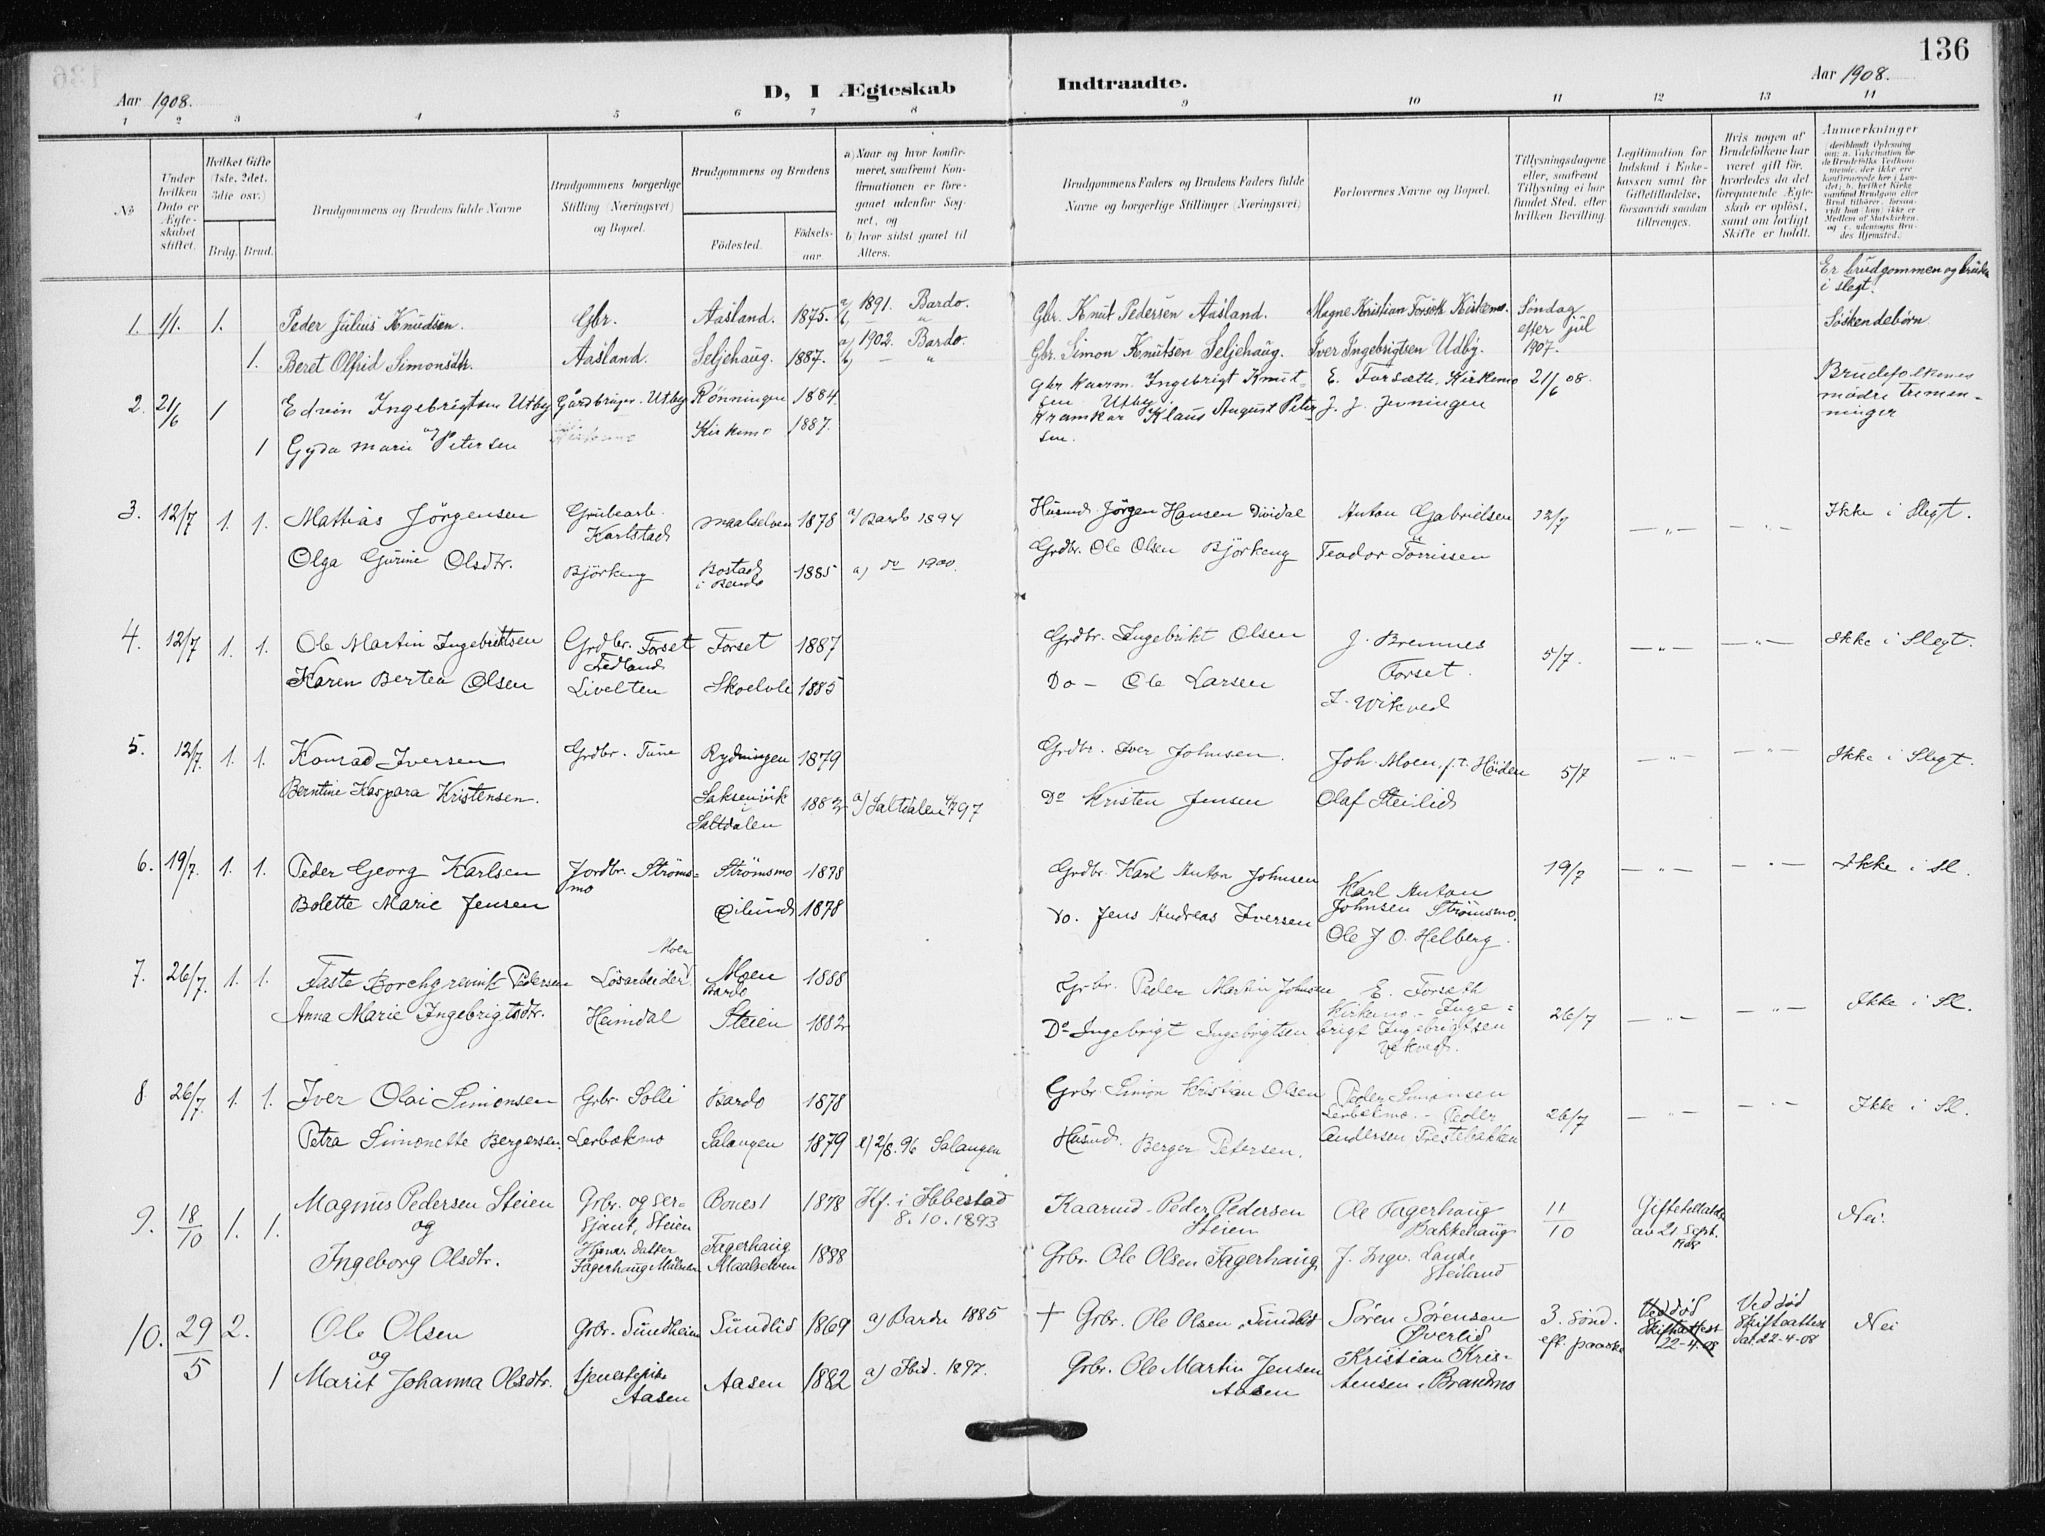 136
Aar 1908.
D, I Ægteskab Indtraadte.
Aar 1908.
1 2 3 4 5 6 7 8 9 10 11 12 13 14
№
Under hvilken Dato er Ægteskabet stiftet.
Hvilket Gifte (1ste, 2det, 3die osv.)
Brdg. Brud.
Brudgommens og Brudens fulde Navne
Brudgommens borgerlige Stilling (Næringsvei) og Bopæl.
Brudgommens og Brudens
Fødested.
Fødselsaar.
a) Naar og hvor konfirmeret, saafremt Konfirmationen er foregaaet udenfor Sognet, og
b) hvor sidst gaaet til Alters.
Brudgommens Faders og Brudens Faders fulde Navne og borgerlige Stillinger (Næringsvei)
Forlovernes Navne og Bopæl.
Tillysningsdagene eller, saafremt Tillysning ei har fundet Sted, efter hvilken Bevilling.
Legitimation for Indskud i Enkekassen samt for Giftetilladelse, forsaavidt saadan tiltrænges.
Hvis nogen af Brudefolkene har været gift før, hvorledes da det foregaaende Ægteskab er opløst, samt om lovligt Skifte er holdt.
Anmerkninger
Er brudgommen og bruden i slegt.
1. 1/1. 1. Peder Julius Knudsen. Gbr. Aasland. 1875. a) 1891. Bardo. Gbr. Knut Pedersen Aasland. Magne Kristian Forseth Kirkemo. Søndag efter jul 1907. Søskendebørn
1. Beret Olfrid Simonsdtr. Aasland. Seljehaug. 1887. a) 1902. Bardo. b) — " Gbr. Simon Knutsen Seljehaug. Iver Ingebrigtsen Udby.
2. 21/6 1 Edvin Ingebrigtsen Utby Gardbruger. Utby Rönningen 1884 Gbr Kaarm. Ingebrigt Knutsen Utby. E. Forseth, Kirkemo 21/6 08. Brudefolkenes mødre tremenninger
og
1 Gyda Marie Petersen Kirkemo Kirkemo 1887. Kramkar Klaus August Petersen. J. J. Jenningen
3. 12/7 1. 1. Mattias Jörgensen Grubearb. Karlstad Maalselven 1878 a) Bardo 1894 Husmd. Jörgen Hansen Dividal Anton Gabrielsen 12/7 — " — — " — Ikke i Slegt.
Olga Gurine Olsdtr. Björkeng Bostad i Bardo 1885 a) do 1900. Grdbr. Ole Olsen Björkeng Teodor Torrissen
4. 12/7 1. 1. Ole Martin Ingebriktsen Grdbr. Forset Fredland Forset 1887 Grdbr. Ingebrikt Olsen J. Bremnes Forset. 5/7. — " — — " — Ikke i Slegt.
Karen Bertea Olsen Livelten Skoelvli 1885 Do — Ole Larsen I. Wikved
5. 12/7. 1. 1. Konrad Iversen Grdbr. Tune Rydningen 1879 Grdbr. Iver Johnsen. Joh. Moen, p.t. Höiden 5/7 — " — — " — Ikke i Slegt.
Berntine Kaspara Kristensen. Saksenvik Saltdalen 1882 a) Saltdalen 4/7 97 Do Kristen Jensen Olaf Steilid
6. 19/7. 1. 1. Peder Georg Karlsen Jordbr. Strömsmo Strömsmo 1878 Grdbr. Karl Anton Johnsen Karl Anton Johnsen Strömsmo. 19/7 — " — — " — Ikke i Sl.
Bolette Marie Jensen 1878 Do. Jens Andreas Iversen Ole J O. Helberg.
7. 26/7. 1. 1. Faste Borchgrevink Pedersen Lösarbeider Moen Moen Bardo 1888 Grbr. Peder Martin Johnsen E. Forseth Kirkemo — 26/7 — " — — " — Ikke i Sl.
Anna Marie Ingebrigtsdtr. Heimdal Steien 1882 Do Ingebrigt Ingebrigtsen Ingebrigt Ingebrigtsen Vekved.
8 26/7. 1. 1. Iver Olai Simonsen Grbr. Solli Bardo 1878 Grbr. Simon Kristian Olsen Peder Simonsen Lerbækmo. — 26/7 — " — — " — Ikke i Sl.
Petra Simonette Bergersen. Lerbækmo Salangen 1879 a) 2/8. 96 Salangen Husmd. Berger Petersen. Peder Andersen Prestebakken
9. 18/10 1. 1. Magnus Pedersen Steien Grbr. og Sersjant, Steien Bones 1878 Kf. i Ibbestad 8.10.1893 Kaarmd. Peder Pedersen Steien Ole Fagerhaug Bakkehaug 11/10 Giftetilladelse av 21 Sept. 1908 Nei.
og
Ingeborg Olsdtr. Hjmv. datter Fagerhaug Maalselven Fagerhaug Maalselven 1888 Grbr. Ole Olsen Fagerhaug J. Ingv. Lund. Steiland
10. 29/5 2. Ole Olsen Grbr. Sundheim Sundlid 1869 a) Bardu 1885 + Grbr. Ole Olsen, Sundlid Sören Sörensen Överlid 3. sönd. eft. paaske Ved död Skifteattest 22-4-08 Ved död Skifteattest dat. 22-4-08 Nei
og
1 Marit Johanna Olsdtr. tjenestepike Aasen Aasen 1882 a) Ibid. 1897. Grbr. Ole Martin Jensen Aasen Kristian Kristensen, Brandmo